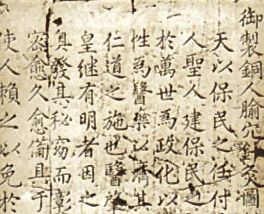 御製銅人腧穴鍼灸圖
天以保民之任付
人聖人建保民之
於萬世為政化以
性為醫藥以濟其
仁道之施也醫肇
皇继有明者因之
真發其秘窈而彰
宻愈久愈備且于
使人賴之以免於